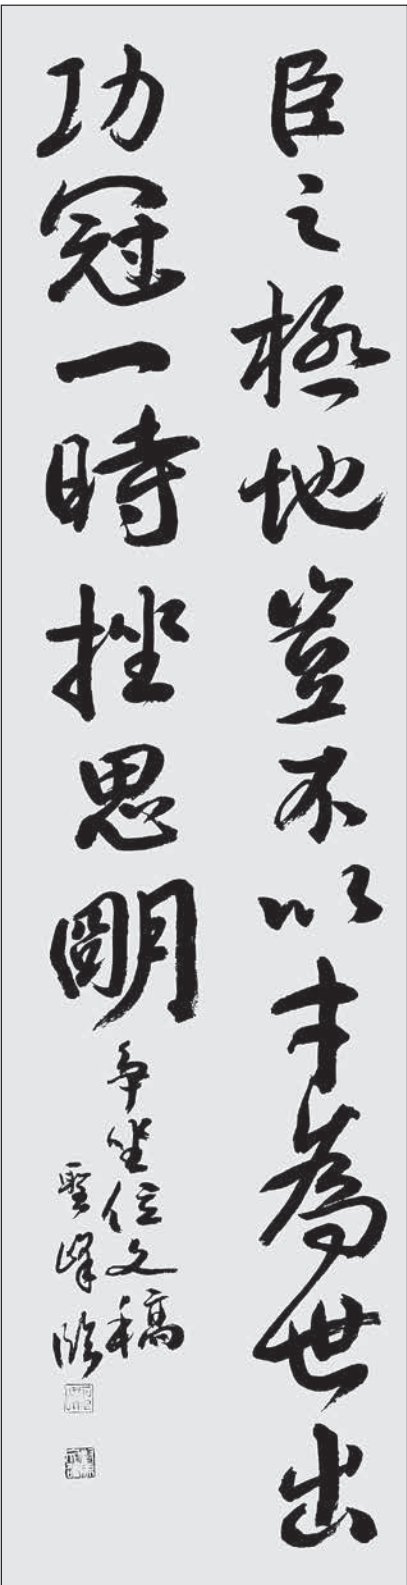 臣之極地豈不以才為世出
功冠一時挫思明
争坐位文稿
峰臨